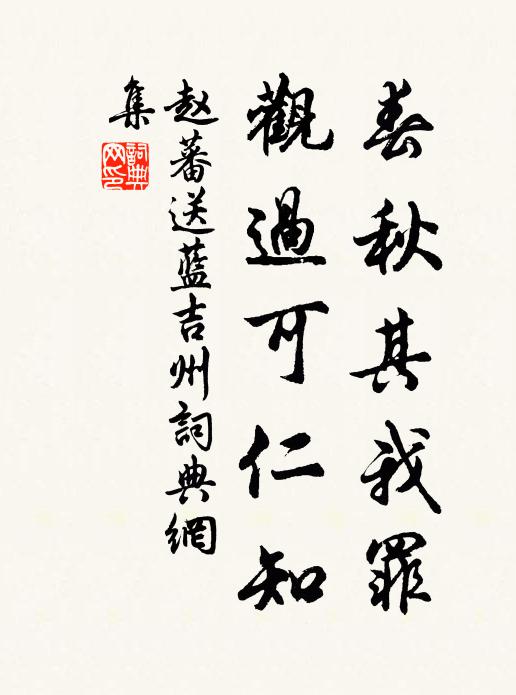 春秋其我罪
觀過可仁知
赵蕃送藍吉州詞典網
集
詞典
网印